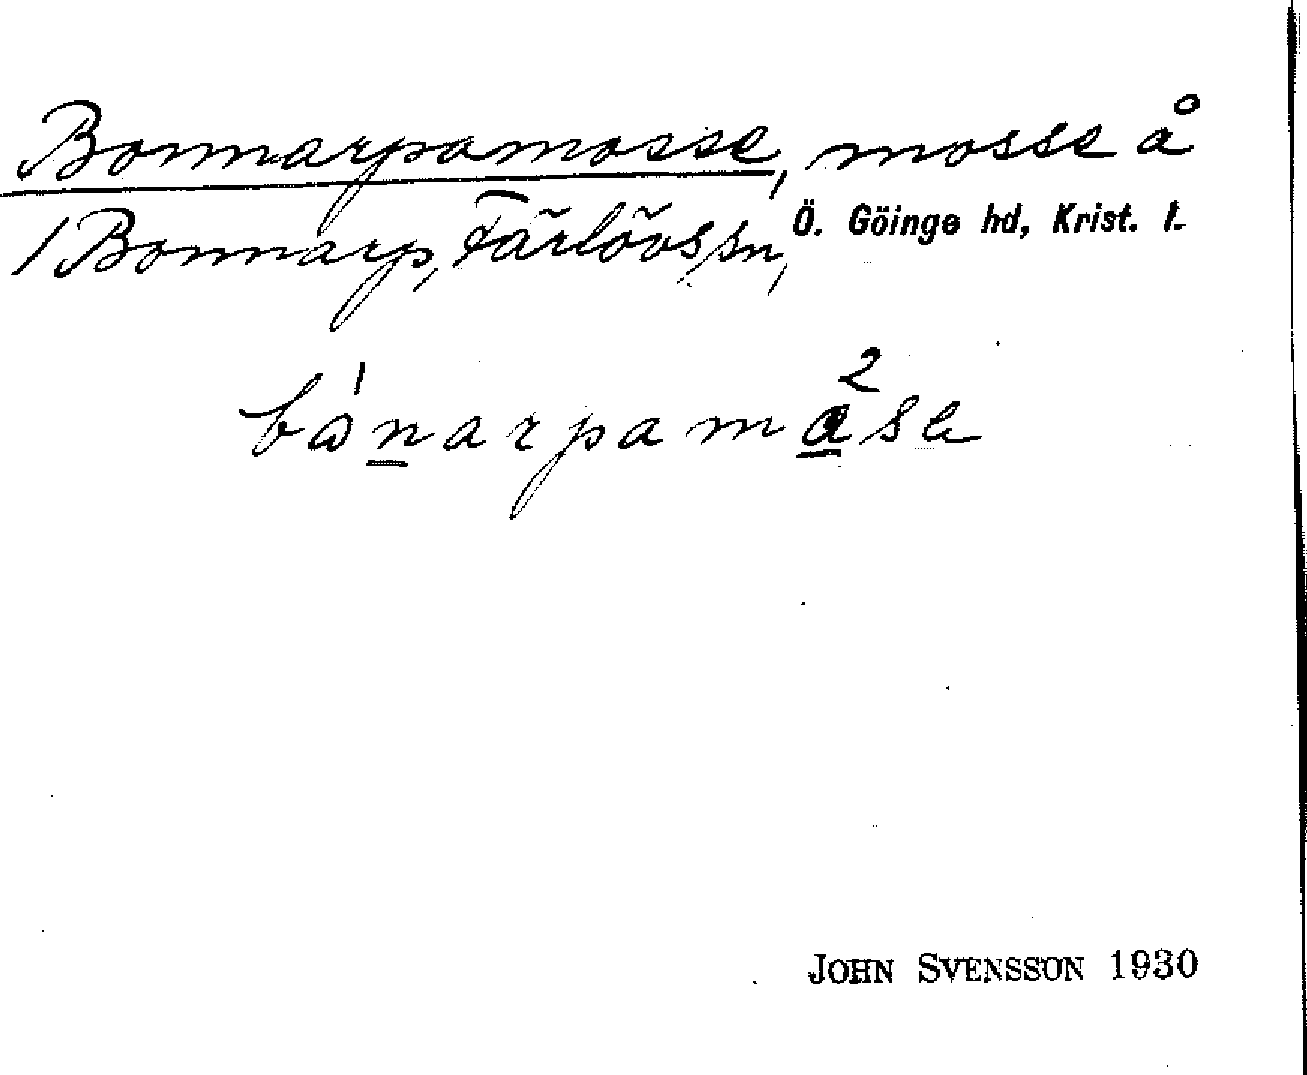 Bonnarpamosse, mosse å
/ Bonnarp, Färlövs sn, Ö. Göinge hd, Krist. l.
bånarpamase
JOHN SVENSSON 1930